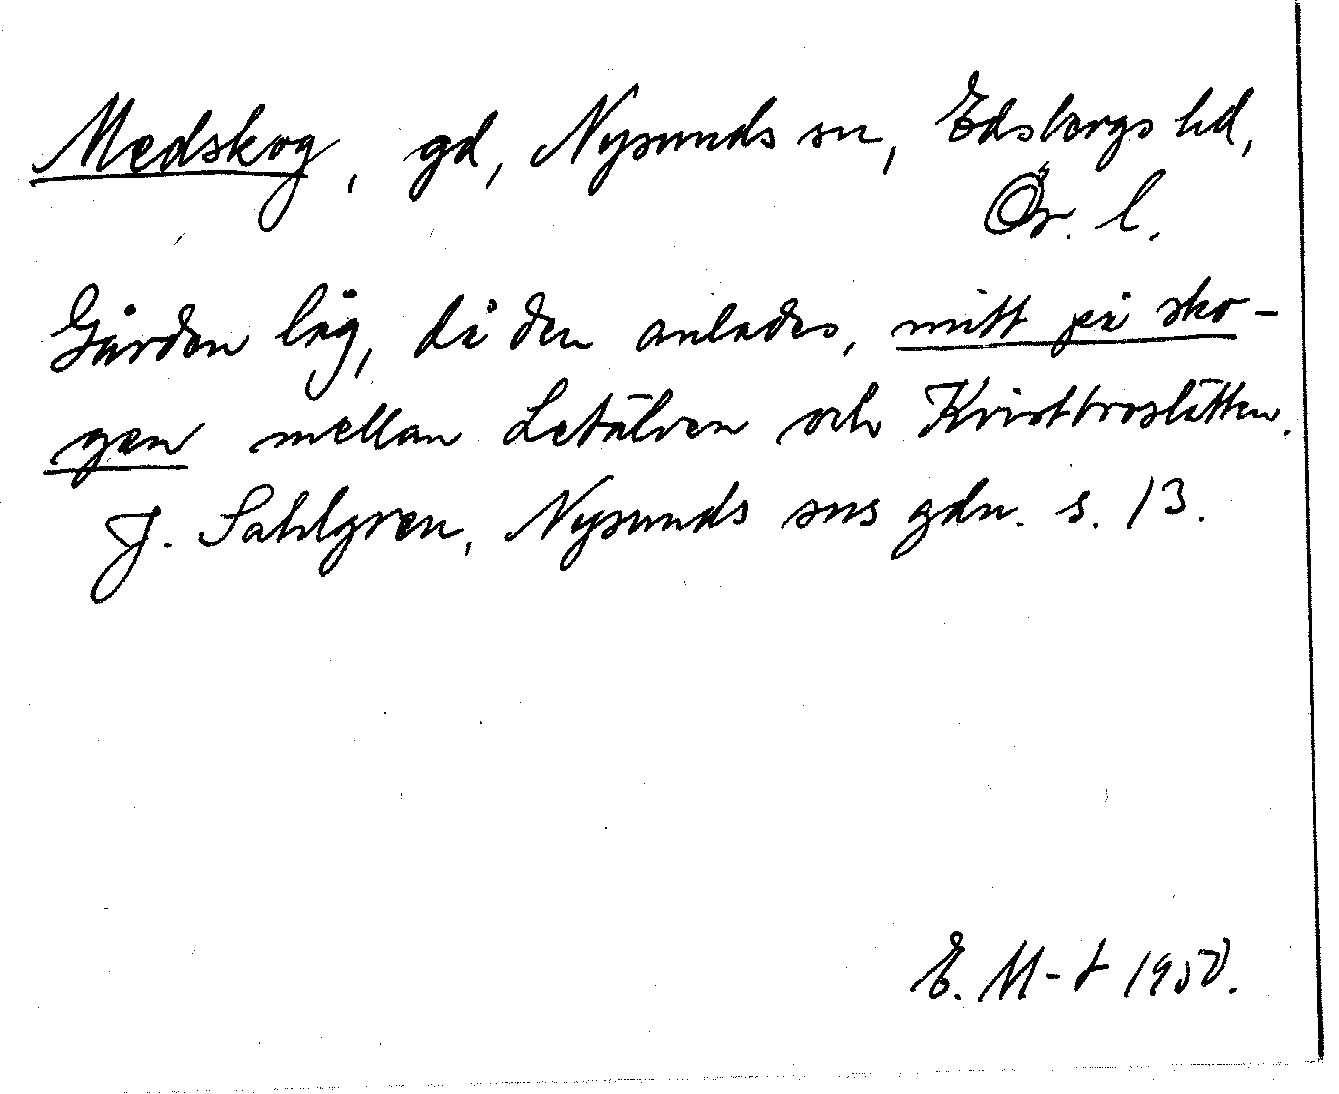 Medskog, gd, Nysunds sn, Edsbergs hd,
Ör. l.
Gården låg, då den anlades, mitt på sko-
gen mellan Letälven och Kvistbroslätten.
J. Sahlgren, Nysunds sns gdn. s. 13.
E. M-t 1950.